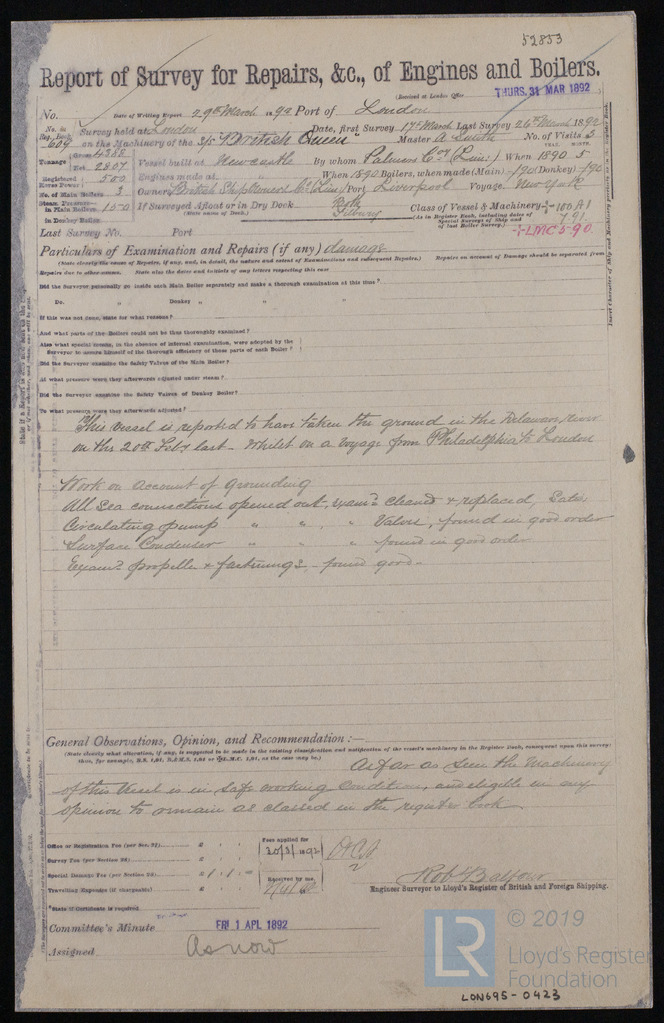 52853
Report of Survey for Repairs, &c., of Engines and Boilers.
(Received at London Office THURS. 31 MAR 1892
No. Date of Writing Report 29th March 1892 Port of London
No. in Reg. Book 609 Survey held at London Date, first Survey 17th March Last Survey 26th March 1892
on the Machinery of the S/S "British Queen" Master A Smith No. of Visits 3
Tonnage Gross 4388 Net 2807 Vessel built at Newcastle By whom Palmers Coy (Lim) When 1890 5
Registered Horse Power 500 Engines made at When 1890 Boilers, when made (Main) 1890 (Donkey) 1890
No. of Main Boilers 3 Owners British Shipowners Co (Lim) Port Liverpool Voyage New York
Steam Pressure in Main Boilers 150 If Surveyed Afloat or in Dry Dock Both Class of Vessel & Machinery 100 A1
in Donkey Boiler (State name of Dock.) Tilbury (As in Register Book, including dates of Special Surveys of Ship and of last Boiler Survey.) 7.91
LMC 5.90
Last Survey No. Port
Particulars of Examination and Repairs (if any) damage
(State clearly the cause of Repairs, if any, and, in detail, the nature and extent of Examinations and subsequent Repairs.) Repairs on account of Damage should be separated from
Repairs due to other causes. State also the dates and initials of any letters respecting this case
Did the Surveyor personally go inside each Main Boiler separately and make a thorough examination at this time?
Do. " Donkey " " "
If this was not done, state for what reasons?
And what parts of the Boilers could not be thus thoroughly examined?
Also what special means, in the absence of internal examination, were adopted by the
Surveyor to assure himself of the thorough efficiency of those parts of each Boiler?
Did the Surveyor examine the Safety Valves of the Main Boiler?
At what pressure were they afterwards adjusted under steam?
Did the Surveyor examine the Safety Valves of Donkey Boiler?
To what pressure were they afterwards adjusted?
This Vessel is reported to have taken the ground in the Delaware river
on the 20th Feby last - Whilst on a voyage from Philadelphia to London
Work on account of Grounding
All Sea connections opened out, exam'd cleaned & replaced,
Circulating pump " " " Valves, found in good order
Surface Condenser " " " found in good order
Exam'd propeller & fastenings - found good -
General Observations, Opinion, and Recommendation:—
(State clearly what alteration, if any, is suggested to be made in the existing classification and notification of the vessel's machinery in the Register Book, consequent upon this survey:
thus, for example, B.S. 1,91, B.&M.S. 1,91 or L.M.C. 1,91, as the case may be.)
As far as seen the Machinery
of this Vessel is in safe working Condition, and eligible in my
opinion to remain as classed in the register book
Office or Registration Fee (per Sec. 27) £ Fees applied for
Survey Fee (per Section 28) £ 30/3/1892
Special Damage Fee (per Section 28) £ 1 : 1 : Received by me,
Travelling Expenses (if chargeable) £
Robt Balfour
Engineer Surveyor to Lloyd's Register of British and Foreign Shipping.
*State if Certificate is required.
Committee's Minute FRI 1 APL 1892
Assigned As now
LR © 2019
Lloyd's Register
Foundation
LON695-0423